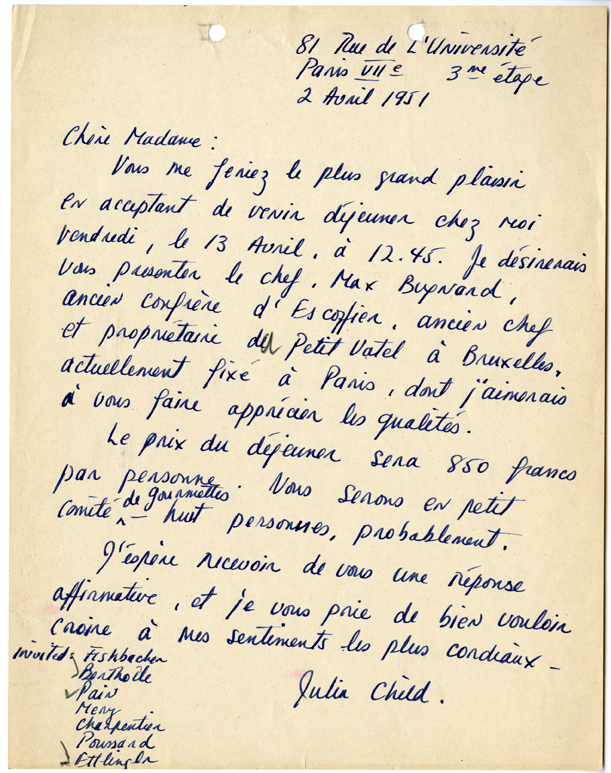 81 Rue de L'Université
Paris VIIe 3me étage
2 Avril 1951
Chère Madame:
Vous me feriez le plus grand plaisir
en acceptant de venir déjeuner chez moi
vendredi, le 13 Avril, à 12.45. Je désirerais
vous présenter le chef, Max Bugnard,
ancien confrère d'Escoffier, ancien chef
et propriétaire du Petit Vatel à Bruxelles,
actuellement fixé à Paris, dont j'aimerais
à vous faire apprécier les qualités.
Le prix du déjeuner sera 850 francs
par personne. Nous serons en petit
comité de gourmettes – huit personnes, probablement.
J'espère recevoir de vous une réponse
affirmative, et je vous prie de bien vouloir
croire à mes sentiments les plus cordiaux –
Julia Child.
invited: Fishbacher
Berthollé
Pain
Mery
Charpentier
Poussard
Ettlinger